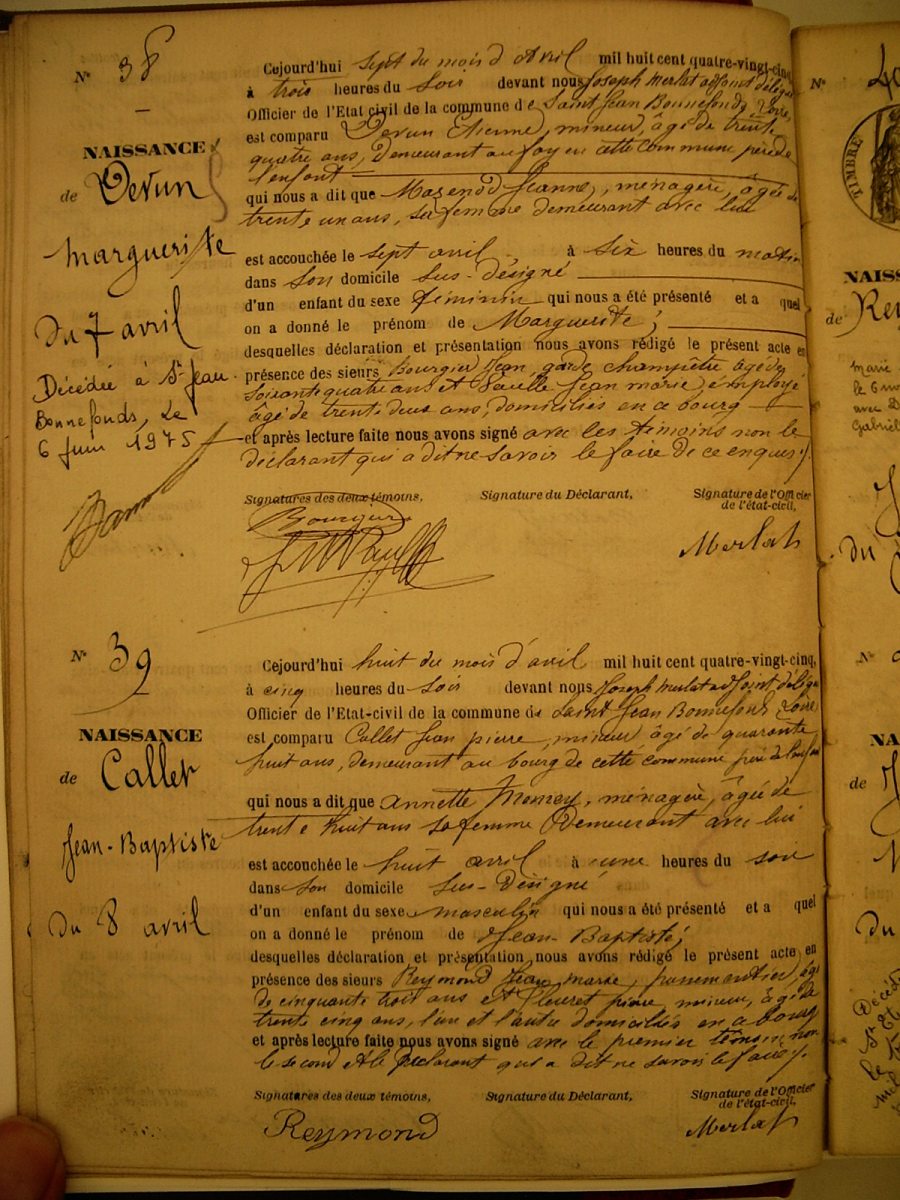 N° 38
NAISSANCE
de Devun
Marguerite
du 7 avril
Décédée à St Jean
Bonnefonds, le
6 Juin 1975
Cejourd'hui sept du mois d'Avril mil huit cent quatre-vingt-cinq,
à trois heures du Soir devant nous Joseph Merlat adjoint délégué
Officier de l'Etat civil de la commune de Saint Jean Bonnefonds, Loire,
est comparu Devun Etienne, mineur, âgé de trente
quatre ans, demeurant au fay en cette commune père de
l'enfant
qui nous a dit que Mazenod Jeanne, ménagère, âgée de
trente un ans, sa femme demeurant avec lui
est accouchée le sept avril à Six heures du matin
dans Son domicile Sus-désigné
d'un enfant du sexe féminin qui nous a été présenté et a quel
on a donné le prénom de Marguerite;
desquelles déclaration et présentation nous avons rédigé le présent acte en
présence des sieurs Bourgier Jean, garde champêtre âgé de
Soixante quatre ans et Jean marie, employé
âgé de trente deux ans, domiciliés en ce bourg
et après lecture faite nous avons signé avec les témoins non le
déclarant qui a dit ne savoir le faire de ce enquis.
Signatures des deux témoins, Signature du Déclarant, Signature de l'Officier
de l'état-civil,
Bourgier
Merlat
N° 39
NAISSANCE
de Callet
Jean-Baptiste
du 8 avril
Cejourd'hui huit du mois d'avril mil huit cent quatre-vingt-cinq,
à cinq heures du Soir devant nous Joseph Merlat adjoint délégué
Officier de l'Etat-civil de la commune de Saint Jean Bonnefonds Loire
est comparu Callet Jean pierre, mineur âgé de quarante
huit ans, demeurant au bourg de cette commune père de l'enfant
qui nous a dit que Annette, ménagère, âgée de
trente huit ans sa femme Demeurant avec lui
est accouchée le huit avril à une heures du soir
dans Son domicile Sus-Désigné
d'un enfant du sexe masculin qui nous a été présenté et a quel
on a donné le prénom de Jean-Baptiste;
desquelles déclaration et présentation nous avons rédigé le présent acte en
présence des sieurs Reymond Jean marie, passementier, âgé
de cinquante trois ans et Fleuret pierre, mineur, âgé de
trente cinq ans, l'un et l'autre domiciliés en ce bourg
et après lecture faite nous avons signé avec le premier témoin non
le second et le Déclarant qui a dit ne savoir le faire.
Signatures des deux témoins, Signature du Déclarant, Signature de l'Officier
de l'état-civil,
Reymond
Merlat
N° 40
TIMBRE
NAISS
de Rey
marié
le 6
avec
Gabriel
du
N°
NA
de
du
Décédé